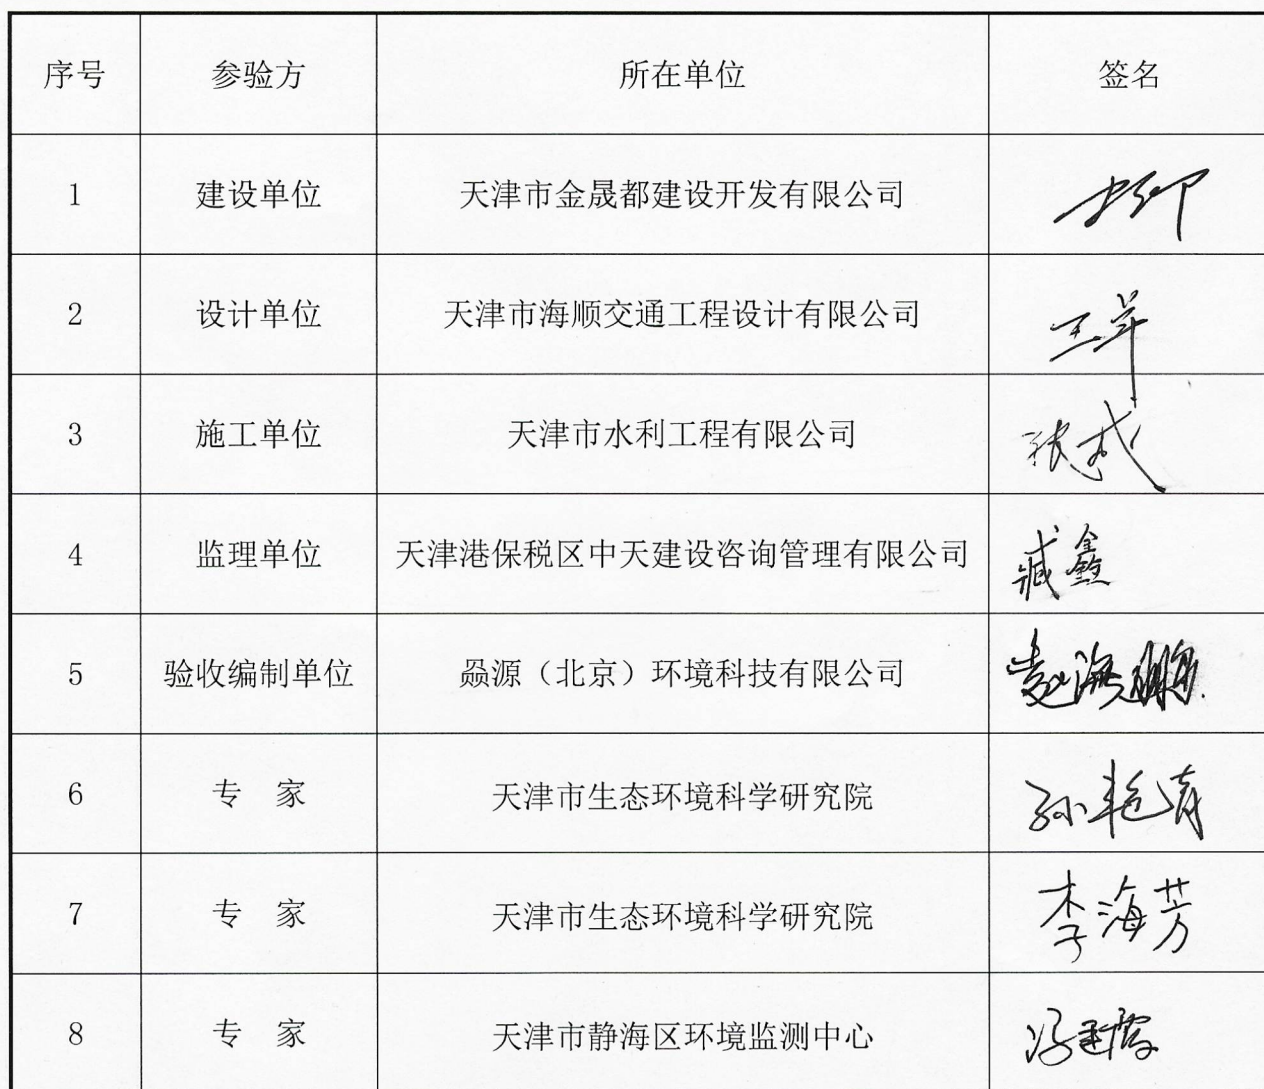 序号 参验方 所在单位 签名
1 建设单位 天津市金晟都建设开发有限公司
2 设计单位 天津市海顺交通工程设计有限公司
3 施工单位 天津市水利工程有限公司
4 监理单位 天津港保税区中天建设咨询管理有限公司 臧鑫
5 验收编制单位 赑源（北京）环境科技有限公司 袁海鹏
6 专 家 天津市生态环境科学研究院 孙艳青
7 专 家 天津市生态环境科学研究院 李海芳
8 专 家 天津市静海区环境监测中心